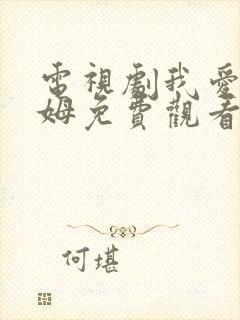 電視劇我愛
姆免費觀看
何堪